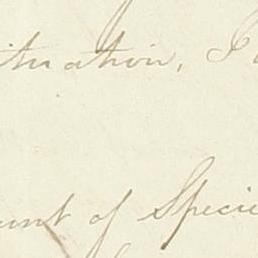 ituation, I
unt of Specie